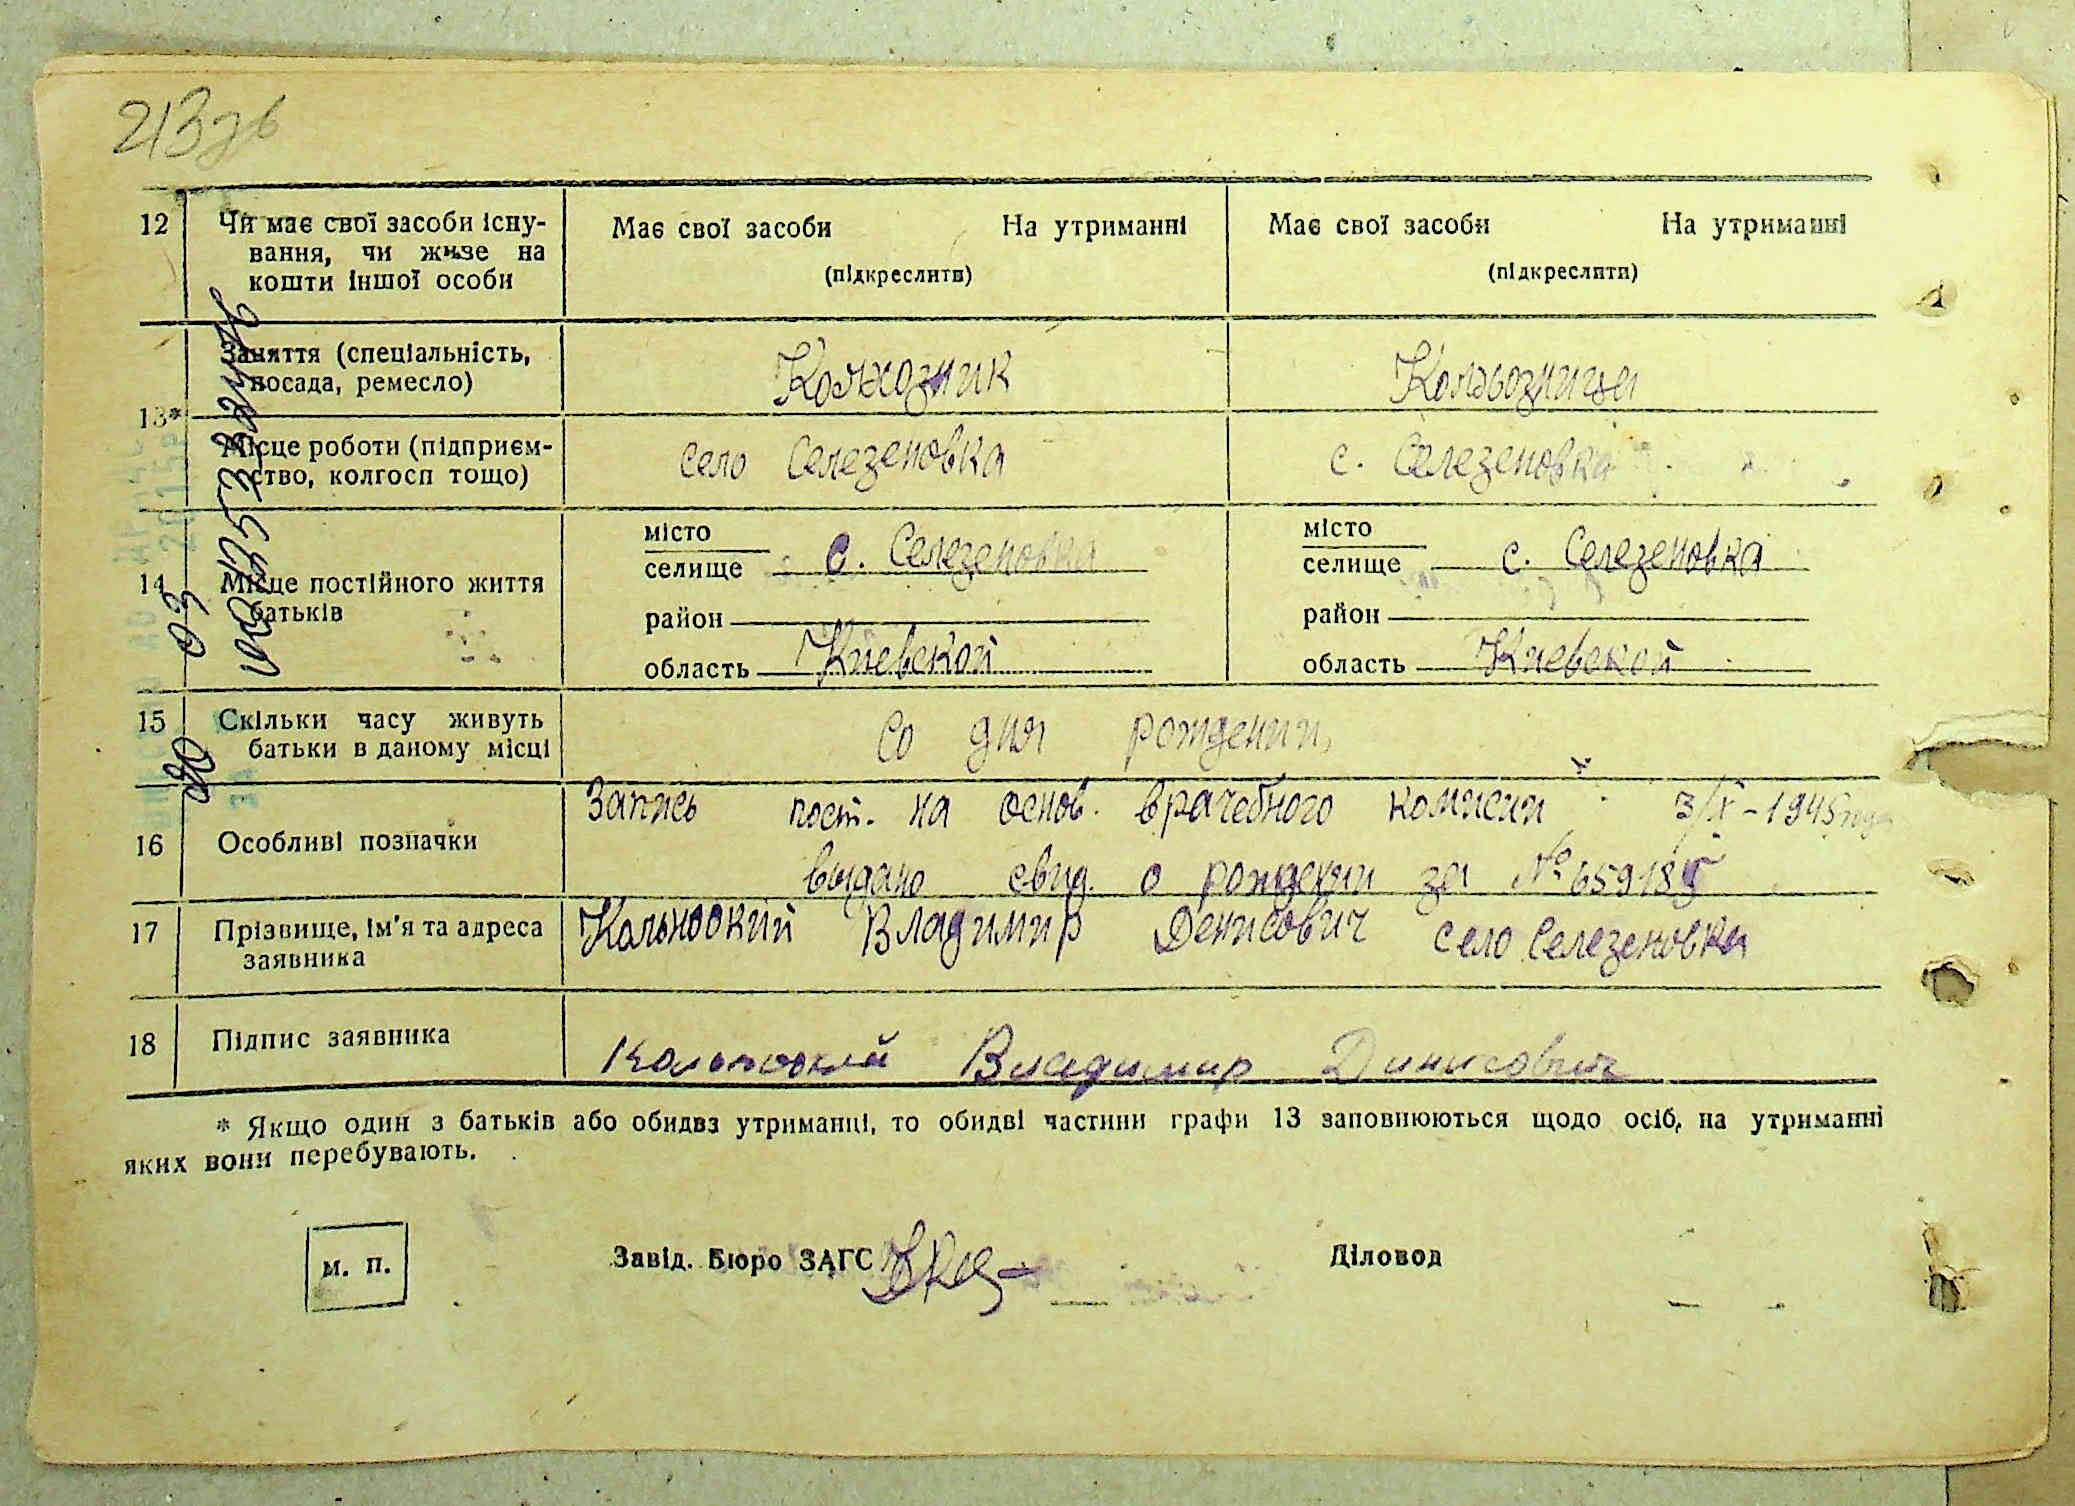 213зв
12 Чи має свої засоби існу- Має свої засоби На утриманні Має свої засоби На утриманні
вання, чи живе на (підкреслити) (підкреслити)
кошти іншої особи
Заняття (спеціальність, Колхозник
посада, ремесло)
13*
Місце роботи (підприєм- село Селезеновка с. Селезеновка
ство, колгосп тощо)
місто місто
селище с. Селезеновка селище с. Селезеновка
14 Місце постійного життя
батьків
район район
область Киевской область Киевской
15 Скільки часу живуть Со дня рождения
батьки в даному місці
Запись пост. на основ. врачебного комисии 3/X-1945
16 Особливі позначки
выдано свид. о рождении за №
17 Прізвище, ім'я та адреса Владимир Денисович село Селезеновка
заявника
18 Підпис заявника Владимир Динисович
* Якщо один з батьків або обидва утриманці, то обидві частини графи 13 заповнюються щодо осіб, на утриманні
яких вони перебувають.
м. п. Завід. Бюро ЗАГС Діловод